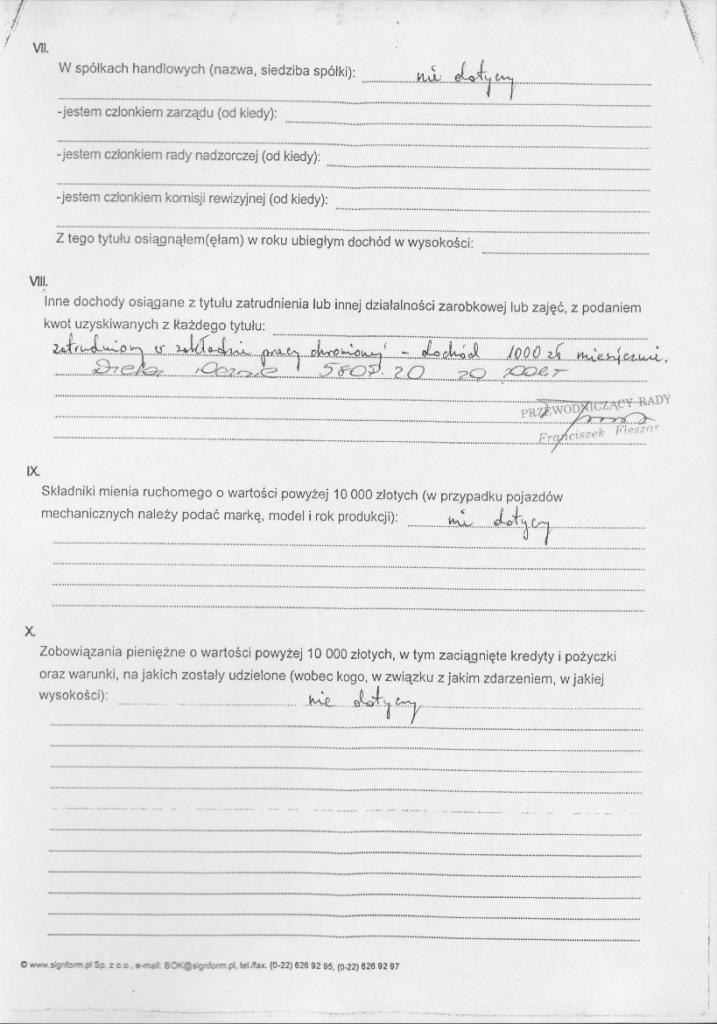 VII.
W spółkach handlowych (nazwa, siedziba spółki): nie dotyczy
-jestem członkiem zarządu (od kiedy):
-jestem członkiem rady nadzorczej (od kiedy):
-jestem członkiem komisji rewizyjnej (od kiedy):
Z tego tytułu osiągnąłem(ęłam) w roku ubiegłym dochód w wysokości:
VIII.
Inne dochody osiągane z tytułu zatrudnienia lub innej działalności zarobkowej lub zajęć, z podaniem
kwot uzyskiwanych z każdego tytułu:
zatrudniony w zakładzie pracy chronionej - dochód 1000 zł miesięcznie.
Dieta 5807.20
PRZEWODNICZĄCY RADY
Franciszek Fleszar
IX.
Składniki mienia ruchomego o wartości powyżej 10 000 złotych (w przypadku pojazdów
mechanicznych należy podać markę, model i rok produkcji): nie dotyczy
X.
Zobowiązania pieniężne o wartości powyżej 10 000 złotych, w tym zaciągnięte kredyty i pożyczki
oraz warunki, na jakich zostały udzielone (wobec kogo, w związku z jakim zdarzeniem, w jakiej
wysokości): nie dotyczy
© www.signform.pl Sp. z o.o., e-mail: BOK@signform.pl, tel./fax. (0-22) 626 92 95, (0-22) 626 92 97